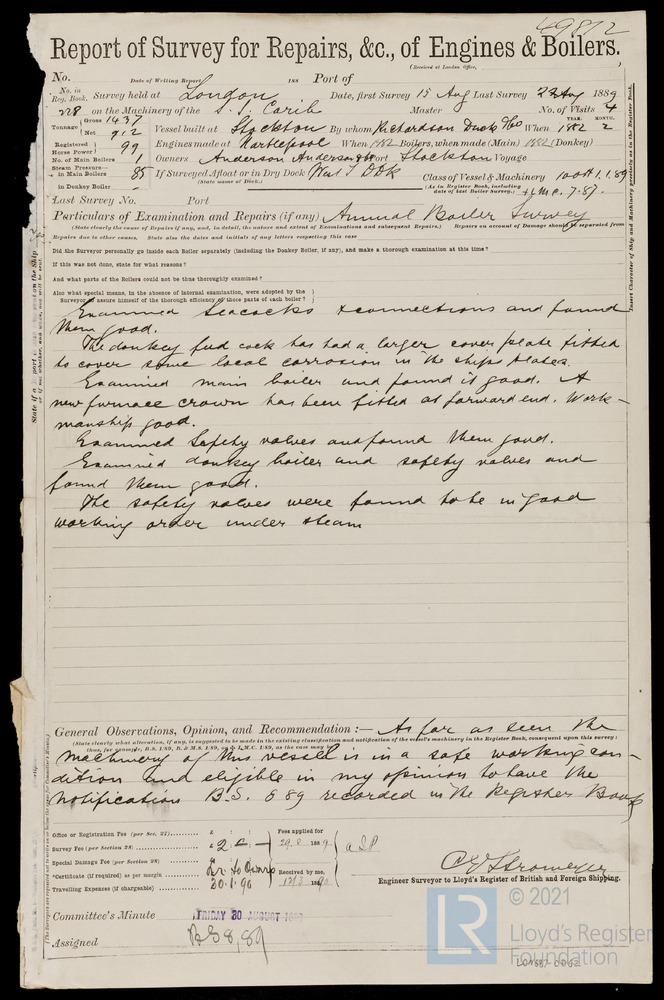 49812
Report of Survey for Repairs, &c., of Engines & Boilers.
(Received at London Office,
No. Date of Writing Report 188 Port of
No. in Reg. Book. Survey held at London Date, first Survey 15 Aug Last Survey 22 Aug 1889
228 on the Machinery of the S.S. Carib Master No. of Visits 4
Tonnage Gross 1437 Net 912 Vessel built at Stockton By whom Richardson Duck & Co When 1882 YEAR. MONTH. 2
Registered Horse Power 99 Engines made at Hartlepool When 1882 Boilers, when made (Main) 1882 (Donkey)
No. of Main Boilers 1 Owners Anderson Anderson & Co Port Stockton Voyage
Steam Pressure in Main Boilers 85 If Surveyed Afloat or in Dry Dock West I Dk Class of Vessel & Machinery 100A1 1.89
(State name of Dock.) (As in Register Book, including date of last Boiler Survey.) + LMC. 7.87.
in Donkey Boiler
Last Survey No. Port
Particulars of Examination and Repairs (if any) Annual Boiler Survey
(State clearly the cause of Repairs if any, and, in detail, the nature and extent of Examinations and subsequent Repairs.) Repairs on account of Damage should be separated from
Repairs due to other causes. State also the dates and initials of any letters respecting this case
Did the Surveyor personally go inside each Boiler separately (including the Donkey Boiler, if any), and make a thorough examination at this time?
If this was not done, state for what reasons?
And what parts of the Boilers could not be thus thoroughly examined?
Also what special means, in the absence of internal examination, were adopted by the
Surveyor to assure himself of the thorough efficiency of those parts of each boiler?
Examined seacocks & connections and found
them good.
The donkey feed cock has had a larger cover plate fitted
to cover some local corrosion in the ships plates.
Examined main boiler and found it good. A
new furnace crown has been fitted at forward end. Work-
manship good.
Examined Safety valves and found them good.
Examined donkey boiler and safety valves and
found them good.
The safety valves were found to be in good
working order under steam
General Observations, Opinion, and Recommendation :— As far as seen the
(State clearly what alteration, if any, is suggested to be made in the existing classification and notification of the vessel's machinery in the Register Book, consequent upon this survey:
thus, for example, B.S. 1/89, B. & M.S. 1/89, or + L.M.C. 1/89, as the case may be)
machinery of this vessel is in a safe working con-
dition and eligible in my opinion to have the
notification B.S. 8 89 recorded in the Register Book
Office or Registration Fee (per Sec. 27) £ : : Fees applied for
Survey Fee (per Section 28) £ 2 : - : - 29.8 1889
Special Damage Fee (per Section 28) £ : :
*Certificate (if required) as per margin Received by me,
Travelling Expenses (if chargeable) 30.1.90 12/3 1890
Engineer Surveyor to Lloyd's Register of British and Foreign Shipping.
Committee's Minute FRIDAY 30 AUGUST 1889
Assigned BS 8,89
© 2021
LR
Lloyd's Register
Foundation